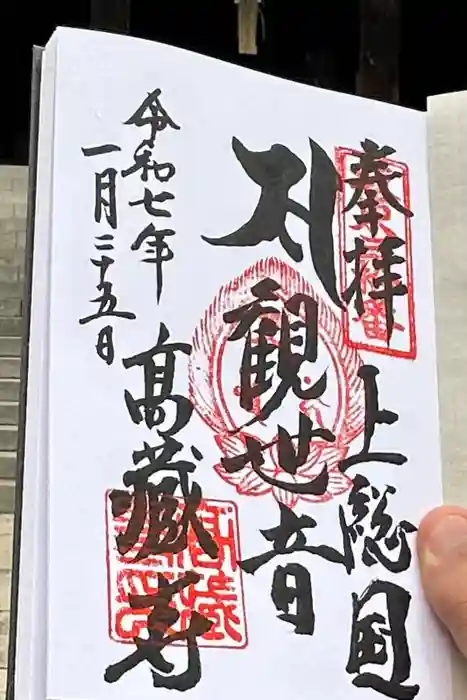 奉拝
上総国
𑖭 観世音
高藏寺
令和七年
一月二十五日